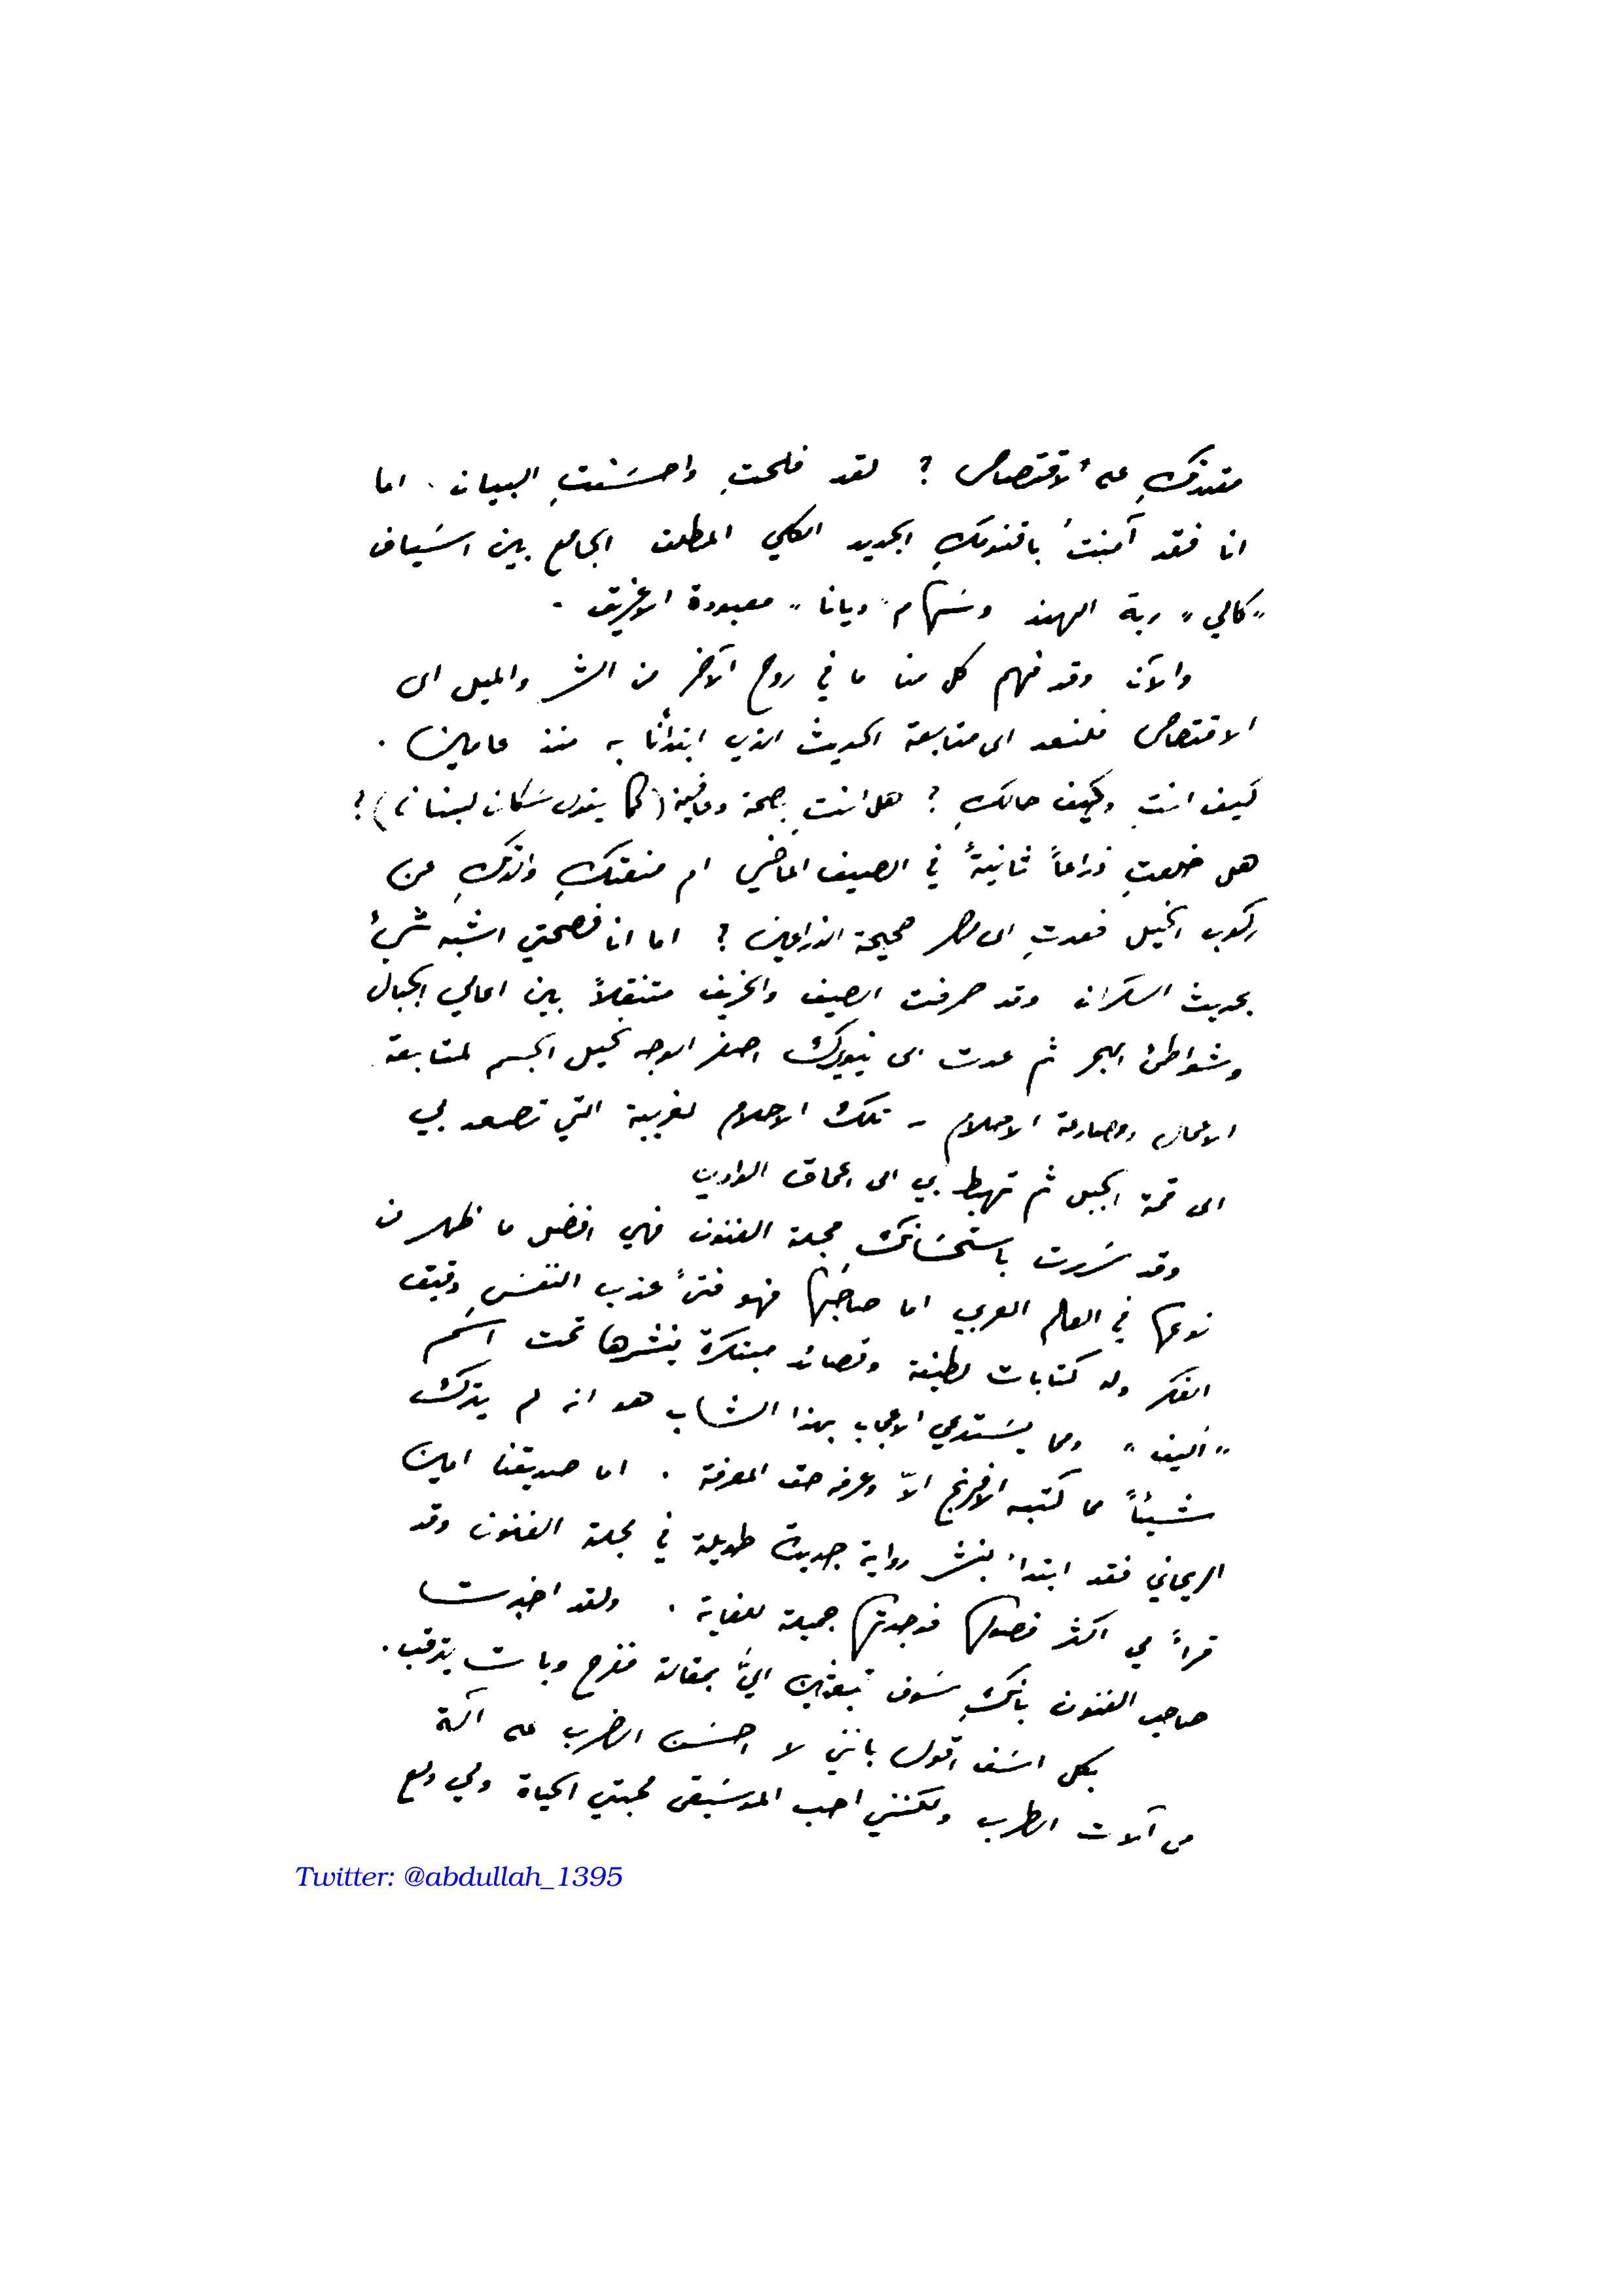 مقدرتكِ على الاقتصاص ? لقد فلحتِ واحسَنتِ البيان . اما
انا فقد آمنتُ باقنومكِ الجديد الكلي المطلق الجامع بين اسَياف
„ كالي „ ربة الهند وسَهام „ ديانا „ معبودة الاغريق .
والآن وقد فهم كل منا ما في روح الآخر من الشر والميل الى
الاقتصاص فلنعد الى متابعة الحديث الذي ابتدأنا به منذ عامين .
كيف انتِ وكيف حالكِ ? هل انتِ بصحة وعافية (كما يقول سَكان لبنان) ?
هل خلعتِ ذراعاً ثانيةً في الصيف الماضي ام منعتكِ والدتكِ من
ركوب الخيل فعدتِ الى مصر صحيحة الذراعين ? اما انا فصحتي اشبه شيءٌ
بحديث السكران وقد صرفت الصيف والخريف متنقلاً بين اعالي الجبال
وشواطئ البحر ثم عدت الى نيويرك اصفر الوجه نحيل الجسم لمتابعة
الاعمال ومصارعة الاحلام - تلك الاحلام الغريبة التي تصعد بي
الى قمة الجبل ثم تهبط بي الى اعماق الوادي
وقد سَررت باستحسَانكِ مجلة الفنون فهي افضل ما ظهر من
نوعها في العالم العربي اما صاحبَها فهو فتىً عذب النفسَ دقيق
الفكر وله كتابات لطيفة وقصائد مبتكرة ينشرها تحت اسَم
„ أليف „ ومما يسَتدعي الاعجاب بهذا الشاب هو انه لم يترك
شيئاً مما كتبه الافرنج الاّ وعرفه حق المعرفة . اما صديقنا امين
الريحاني فقد ابتدأ بنشر رواية جديدة طويلة في مجلة الفنون وقد
قرأ لي اكثر فصولها فوجدتها جميلة للغاية . ولقد اخبرت
صاحب الفنون بانكِ سَوف تبعثين اليَّ بمقالة ففرح وبات يترقب .
بكل اسَف اقول بانني لا احسَن الضرب على آلة
من آلات الطرب ولكنني احب الموسَيقى محبتي الحياة ولي ولع
Twitter: @abdullah_1395